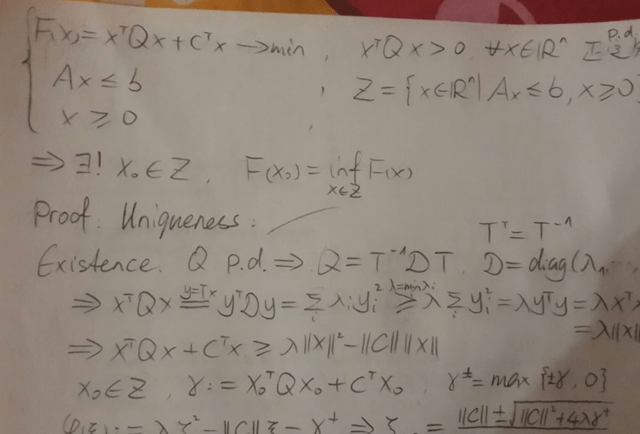 F(x) = xᵀQx + Cᵀx → min , xᵀQx > 0 ∀x∈ℝⁿ p.d.
Ax ≤ b , Z = {x∈ℝⁿ | Ax ≤ b, x ≥ 0}
x ≥ 0
⇒ ∃! x₀ ∈ Z , F(x₀) = inf_{x∈Z} F(x)
Proof. Uniqueness : Tᵀ = T⁻¹
Existence. Q p.d. ⇒ Q = T⁻¹DT , D = diag(λ₁
⇒ xᵀQx =^{y=Tx} yᵀDy = Σ_i λ_i y_i² ≥^{λ=min λ_i} λ Σ_i y_i² = λyᵀy = λxᵀx
= λ‖x‖
⇒ xᵀQx + Cᵀx ≥ λ‖x‖² − ‖C‖ ‖x‖
x₀∈Z , γ := x₀ᵀQx₀ + Cᵀx₀ , γ^± = max {±γ, 0}
φ(ξ) := λξ² − ‖C‖ξ − γ⁺ ⇒ ξ = ‖C‖ ± √(‖C‖² + 4λγ⁺)